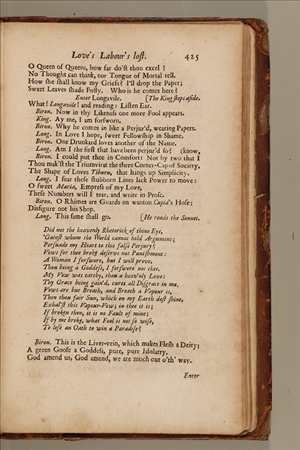 Love's Labour's lost. 425
O Queen of Queens, how far do'st thou excel!
No Thought can think, nor Tongue of Mortal tell.
How she shall know my Griefs? I'll drop the Paper;
Sweet Leaves shade Folly. Who is he comes here?
Enter Longavile. [The King steps aside.
What! Longavile! and reading: Listen Ear.
Biron. Now in thy Likeness one more Fool appears.
King. Ay me, I am forsworn.
Biron. Why he comes in like a Perjur'd, wearing Papers.
Long. In Love I hope, sweet Fellowship in Shame.
Biron. One Drunkard loves another of the Name.
Long. Am I the first that have been perjur'd so? (know,
Biron. I could put thee in Comfort: Not by two that I
Thou mak'st the Triumvirat the three Corner-Cap of Society,
The Shape of Loves Tiburn, that hangs up Simplicity.
Long. I fear these stubborn Lines lack Power to move:
O sweet Maria, Empress of my Love,
These Numbers will I tear, and write in Prose.
Biron. O Rhimes are Guards on wanton Cupid's Hose;
Disfigure not his Shop.
Long. This same shall go. [He reads the Sonnet.
Did not the heavenly Rhetorick of thine Eye,
'Gainst whom the World cannot hold Argument;
Persuade my Heart to this false Perjury?
Vows for thee broke deserve not Punishment:
A Woman I forswore, but I will prove,
Thou being a Goddess, I forswore not thee.
My Vow was earthy, thou a heav'nly Love;
Thy Grace being gain'd, cures all Disgrace in me.
Vows are but Breath, and Breath a Vapour is,
Then thou fair Sun, which on my Earth dost shine,
Exhal'st this Vapour-Vow; in thee it is;
If broken then, it is no Fault of mine;
If by me broke, what Fool is not so wise,
To lose an Oath to win a Paradise?
Biron. This is the Liver-vein, which makes Flesh a Deity;
A green Goose a Goddess, pure, pure Idolatry.
God amend us, God amend, we are much out o'th' way.
Enter